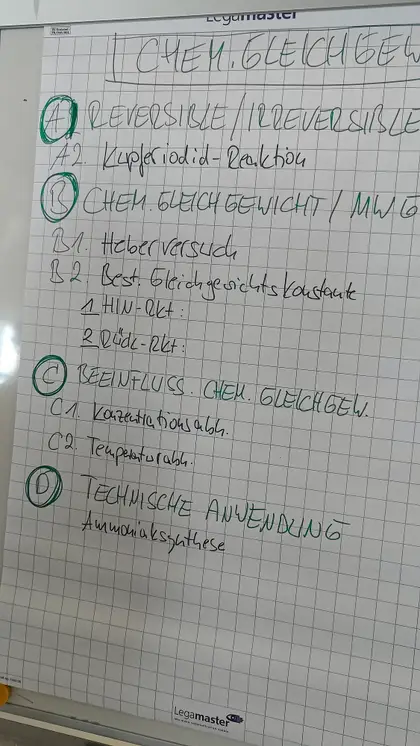 Legamaster
CHEM. GLEICHGEW
A REVERSIBLE/IRREVERSIBLE
A2. Kupferiodid-Reaktion
B CHEM. GLEICHGEWICHT / MWG
B1. Heberversuch
B2. Best. Gleichgewichtskonstante
1 HIN-Rkt:
2 Rück-Rkt:
C BEEINFLUSS. CHEM. GLEICHGEW.
C1. Konzentrationsabh.
C2. Temperaturabh.
D TECHNISCHE ANWENDUNG
Ammoniaksynthese
Legamaster